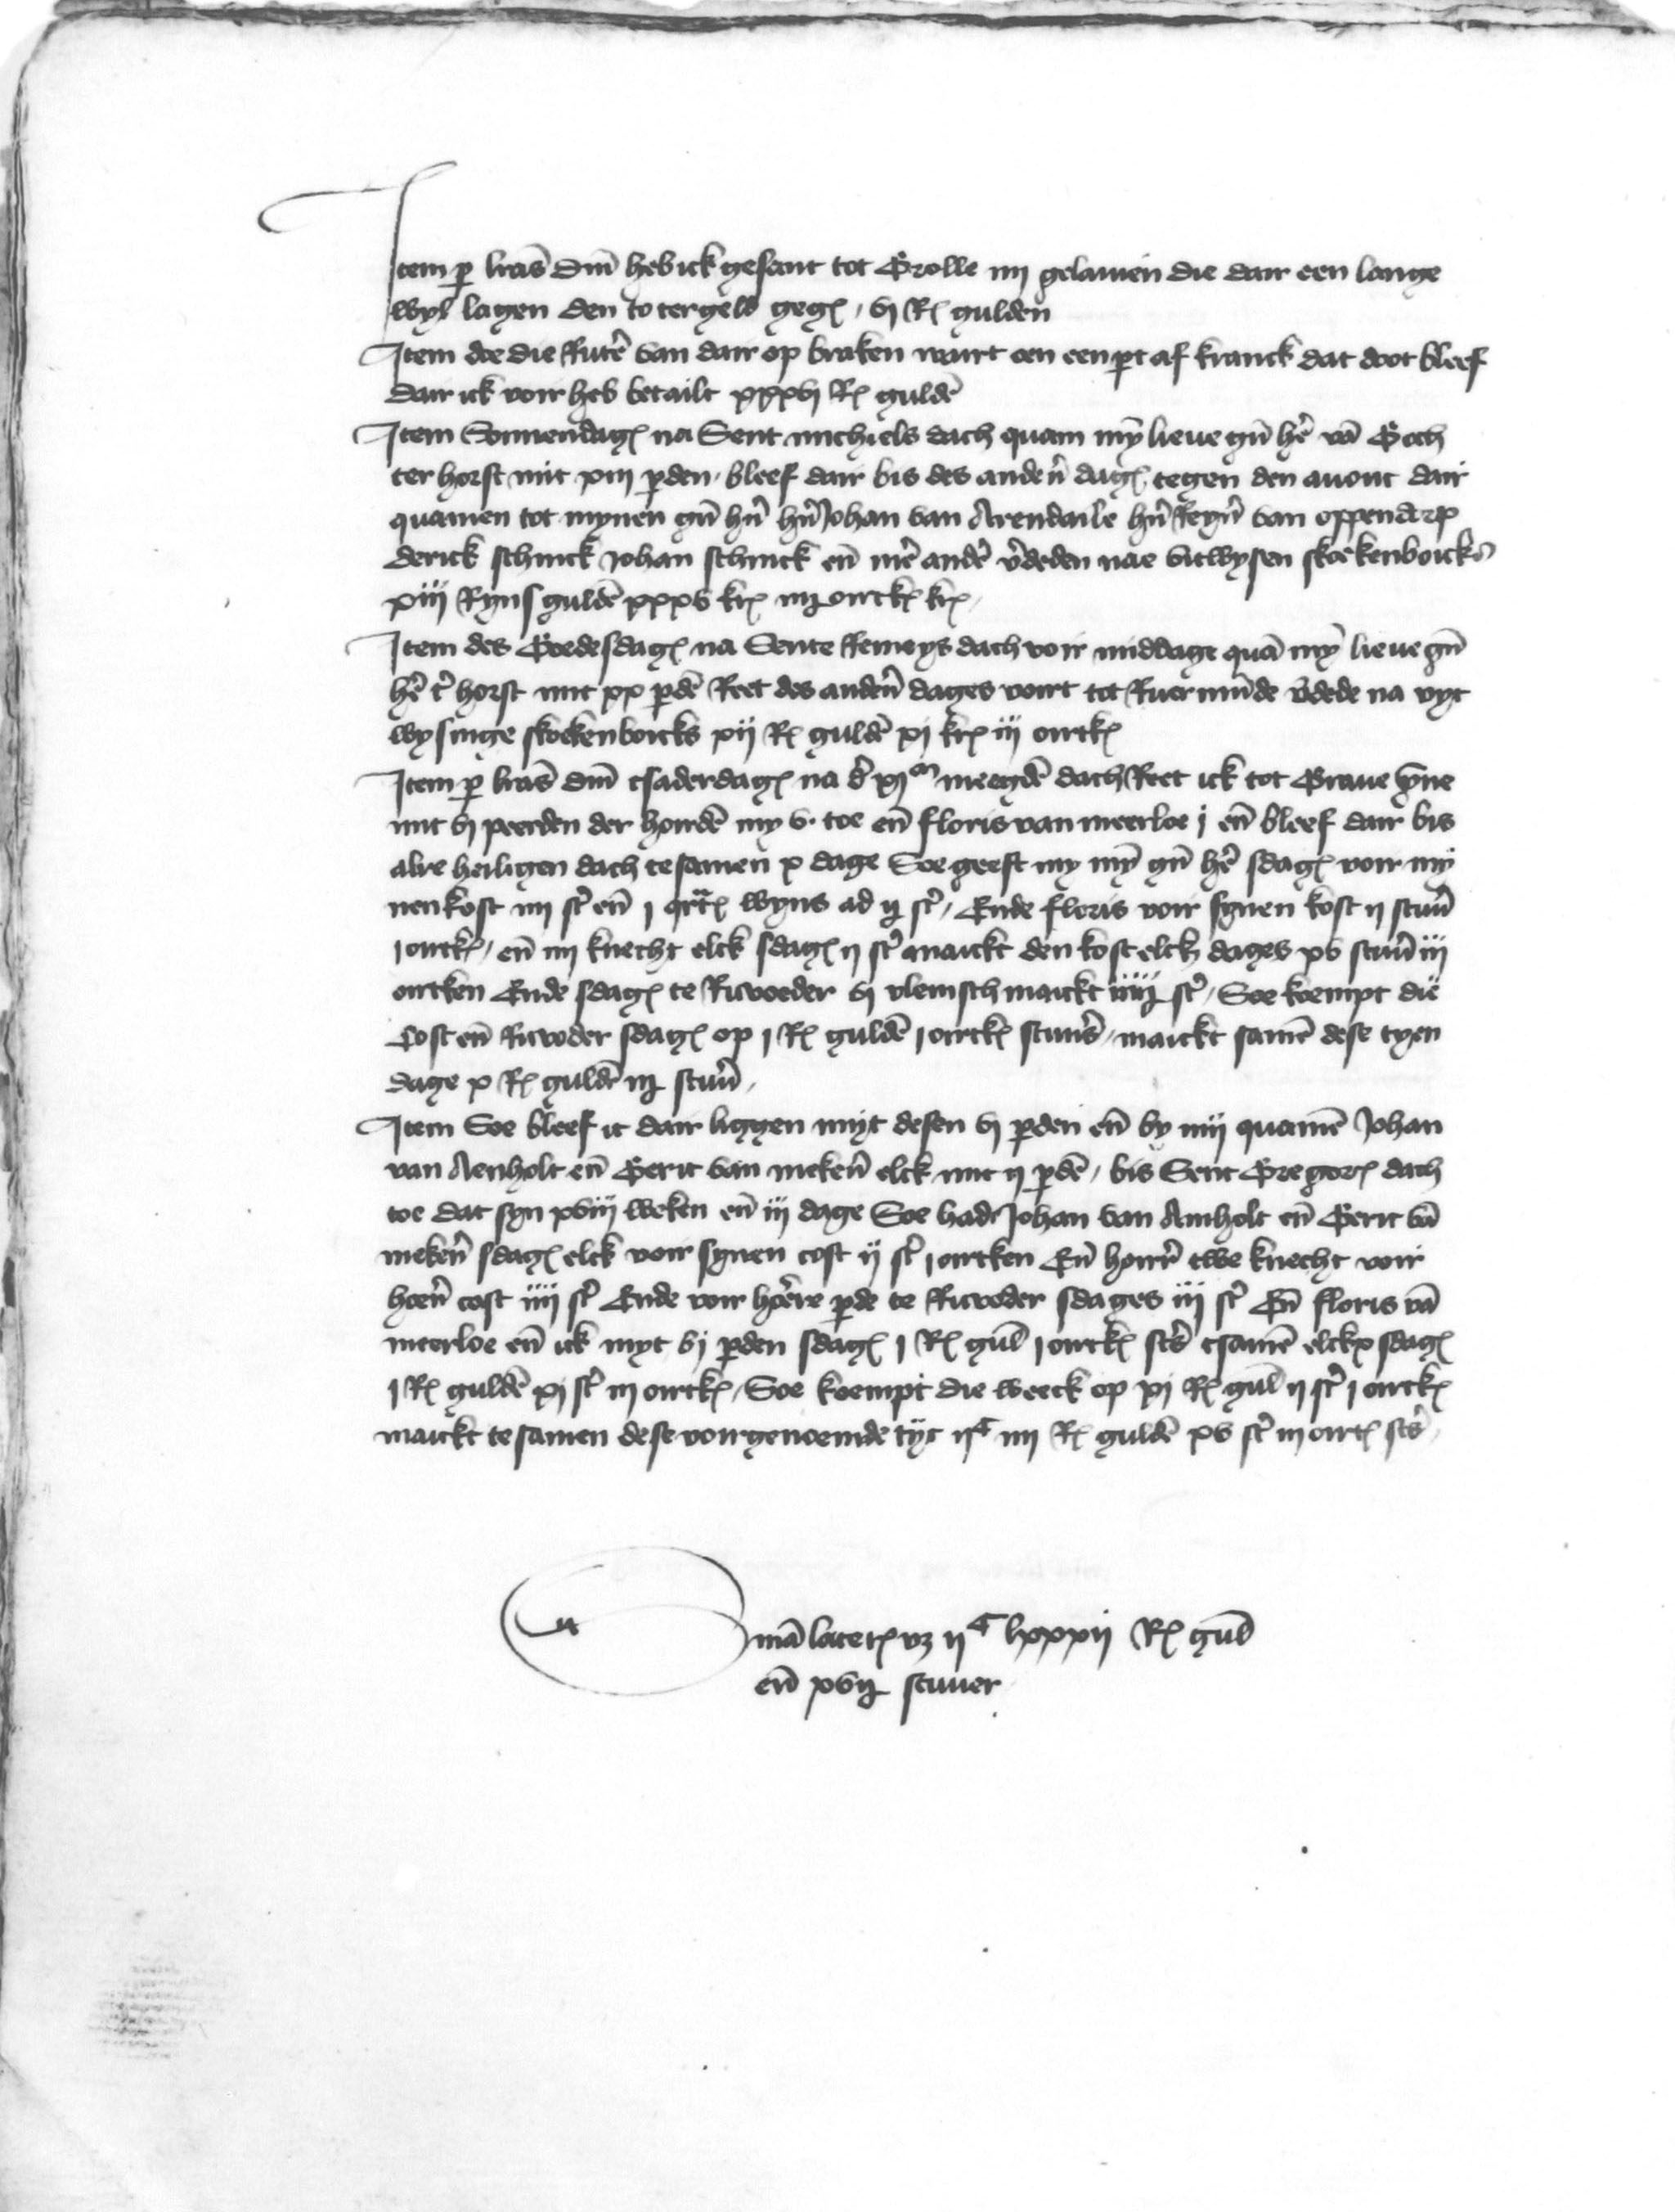 Item p lrās dni heb ick gesant tot Grolle iiij gelauien die dair een lange
wyl lagen den to tergeld gegē, vj Rē gulden
Item doe die Rutē van dair op braken wart een een pt af kranck dat doot bleef
dair ick voir heb betailt xxxvj Rē guldē
Item Sonnendagē na Sent michiels dach quam mȳ lieue gn̄ hē vā Goch
ter horst mit xiij pden, bleef dair bis des andern̄ dagē tegen den auont dair
quamen tot mynen gn̄ hn̄ hn̄ Johan van Arendaile hn̄ Segn̄ van oppendorp
derick schinck Johan schinck en̄ mē andē v̄deden nae vitwysen skoekenboicks
xiij Ryns guldē xxxv krē iij oirckē krē
Item des Goedesdagē na Sente Remeys dach voir middage quā mȳ lieue gn̄
hē t̄ horst mit xx pdē Reet des andern̄ dages voirt tot Ruermūde v̄dede na vyt
wysinge skoekenboicks xij Rē guldē xj krē iij oirtkē
Item p lrās dni tsaderdagē na d̄ xjm meegdē dach Reet ick tot Graue
mit vj peerden der hoirdē my v. toe en̄ floris van meerloe j en̄ bleef dair bis
alre heiligen dach tesamen x dage Soe geeft my mȳ gn̄ hē sdagē voir mij
nen kost iiij st̄ en̄ j qrtē wyns ad ij st̄, Ende floris voir synen kost ij stuū
j oirtkē, en̄ iiij knecht elck sdagē ij st̄ maickt den kost elcks dages xv stuū iij
oirtken Ende sdagē te Ruvoeder vj vlemsch maickt iiij st̄, Soe koempt die
Cost en̄ Ruvoder sdagē op j Rē guldē j oirtkē stuūs, maickt samē dese tyen
dage x Rē guldē ij stuū,
Item Soe bleef ic dair liggen myt desen vj pden en̄ by mij quamē Johan
van Aenholt en̄ Gerit van mekeñ elck mit ij pdē, bis Sent Gregorē dach
toe dat syn xviij weken en̄ iij dage Soe hadt Johan van Anholt en̄ Gerit vā
mekeñ sdagē elck voir synen cost ij st̄ j oirtken En̄ honr̄ twe knecht voir
hoeñ cost iiij st̄ Ende voir hoerre pde te Ruvoder sdages iij st̄ En̄ floris vā
meerloe en̄ ick myt vj pden sdagē j Rē gul j oirtkē sts̄ tsamē elckx sdagē
j Rē guldē xj st̄ iij oirtkē, Soe koempt die weeck op xj Rē gul ij st̄ j oirtkē
maickt tesamen dese voirgenoemde tijt ijc iiij Rē guldē xv st̄ iij oirtē sts̄,
Smā laterē vz ijc lxxxij Rē gul
en̄ xvij stuuer